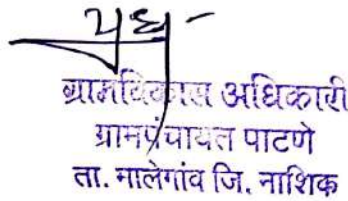 ग्रामविकास अधिकारी
ग्रामपंचायत पाटणे
ता. मालेगांव जि. नाशिक